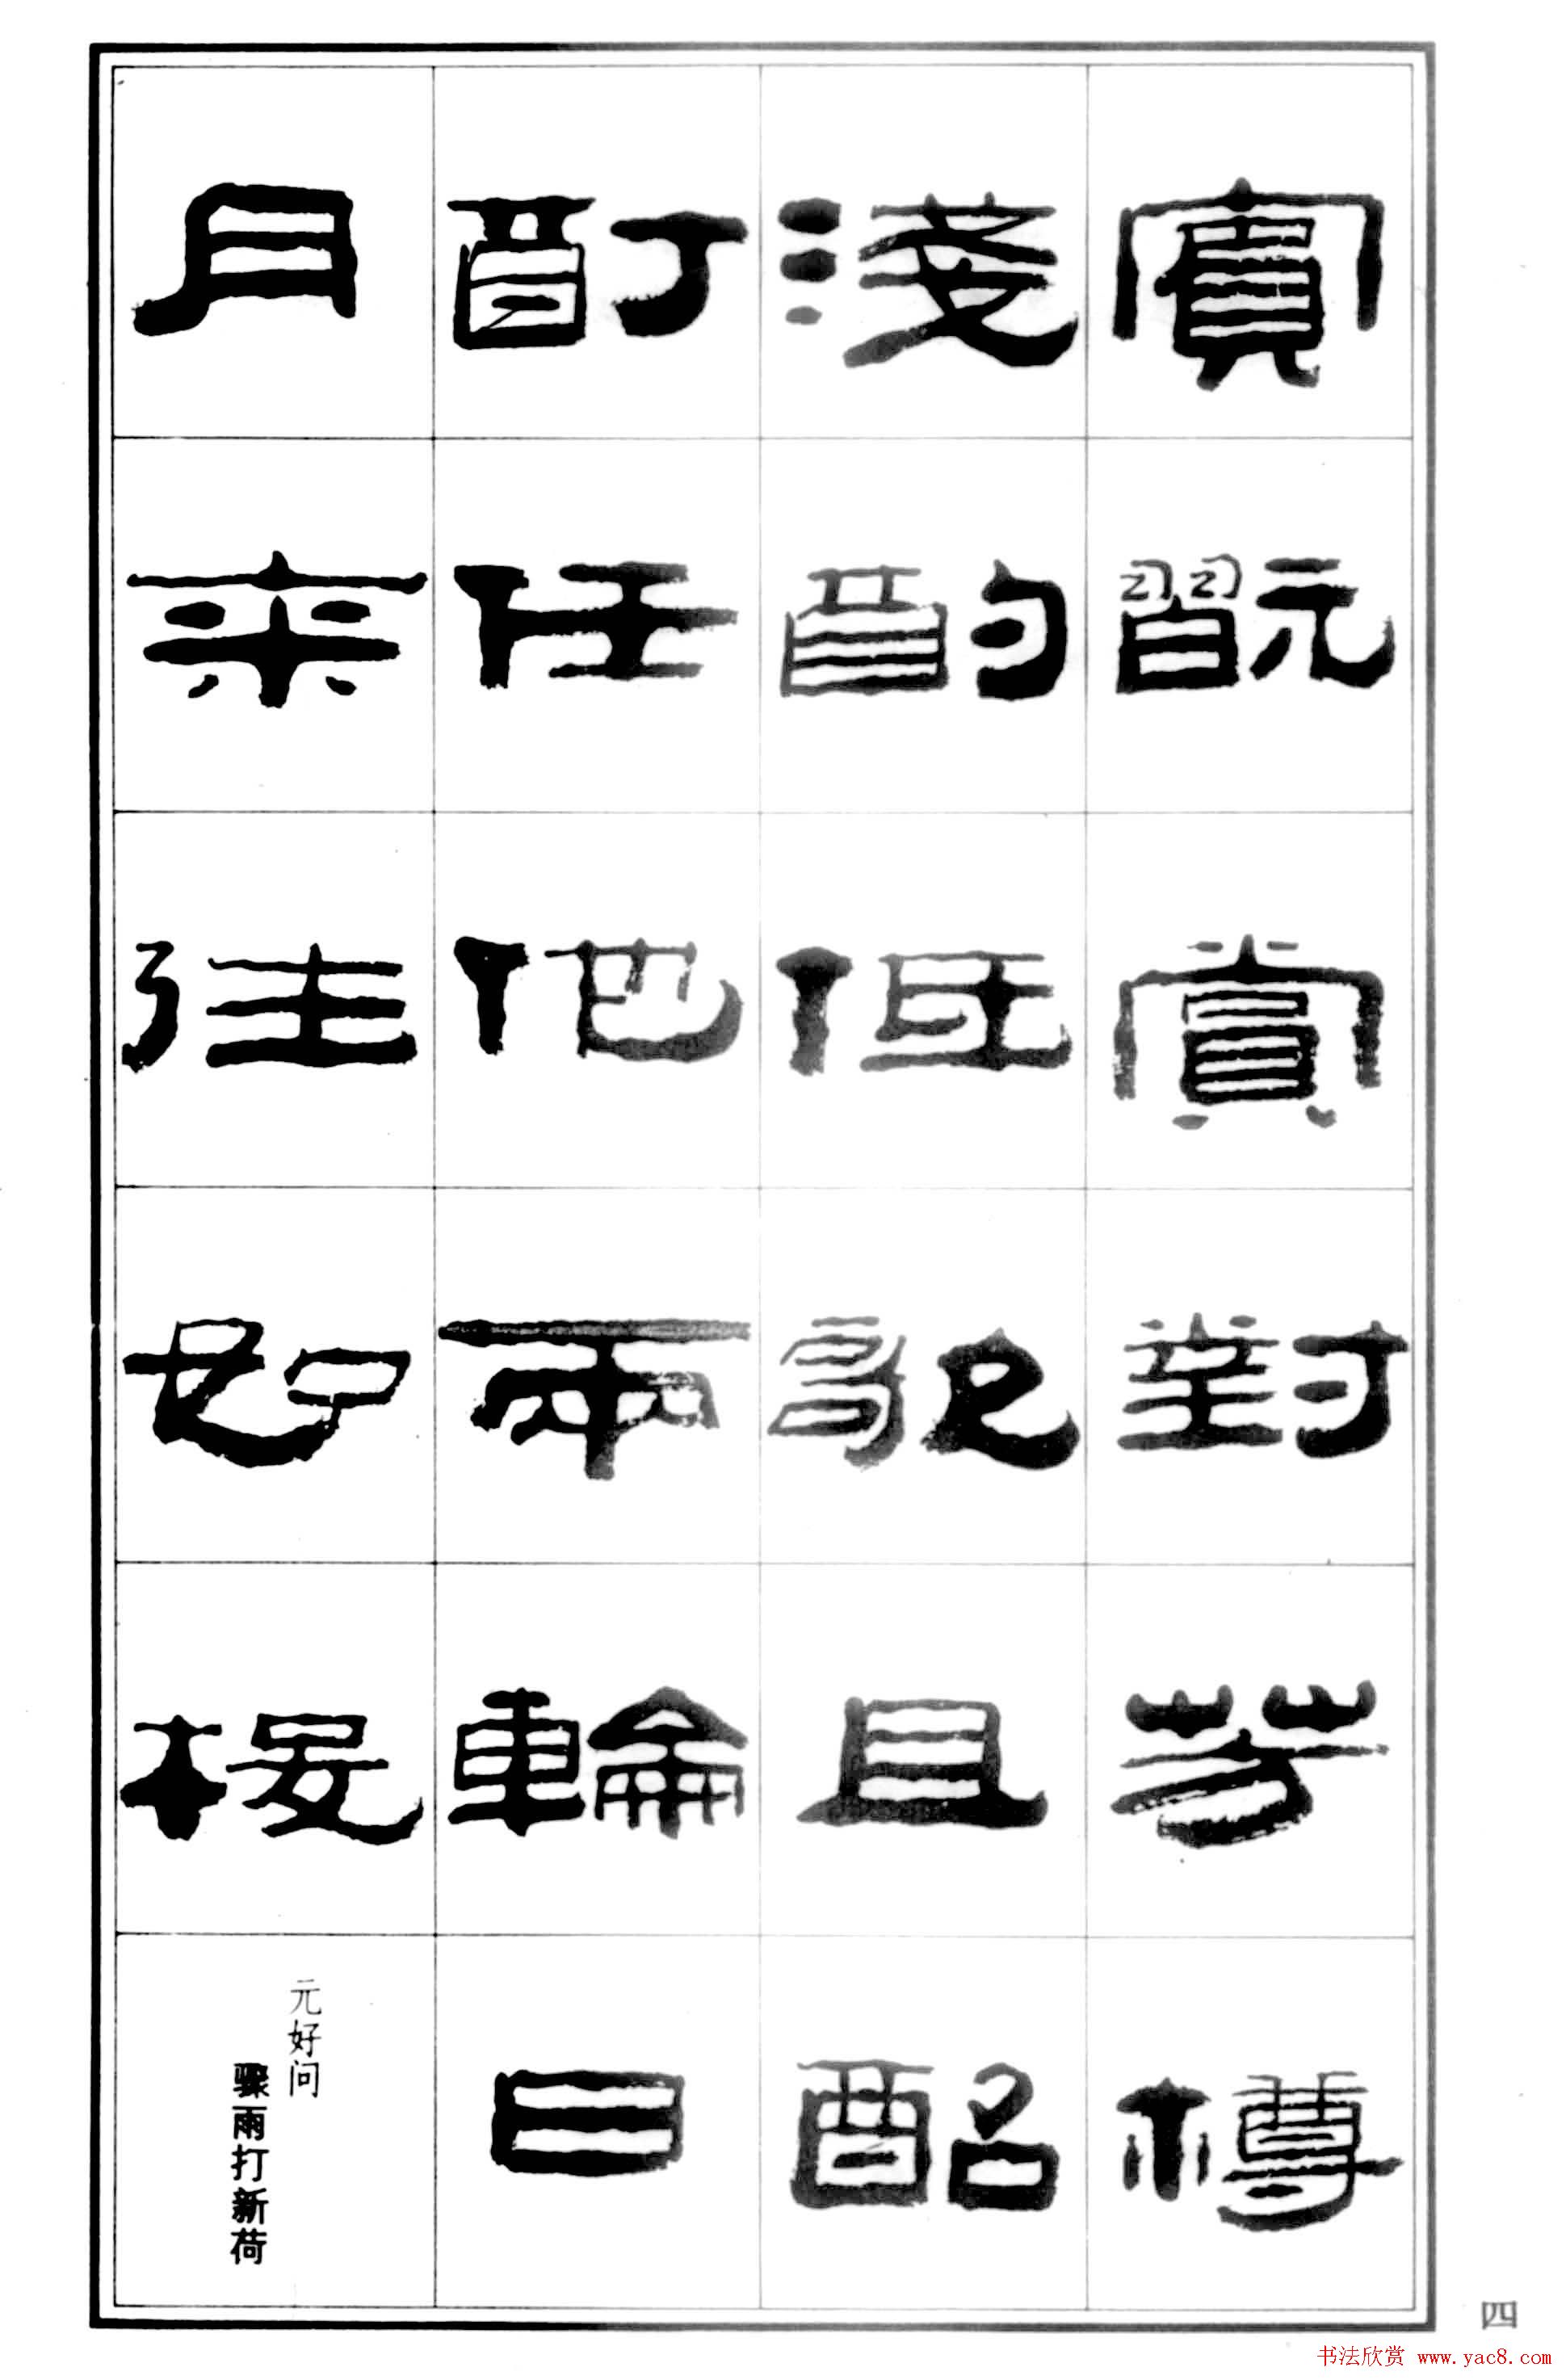 賓翫賞對芳樽
淺酌低歌且酩
酊任他兩輪日
月來往如梭
元好问
骤雨打新荷
四
书法欣赏 www.yac8.com